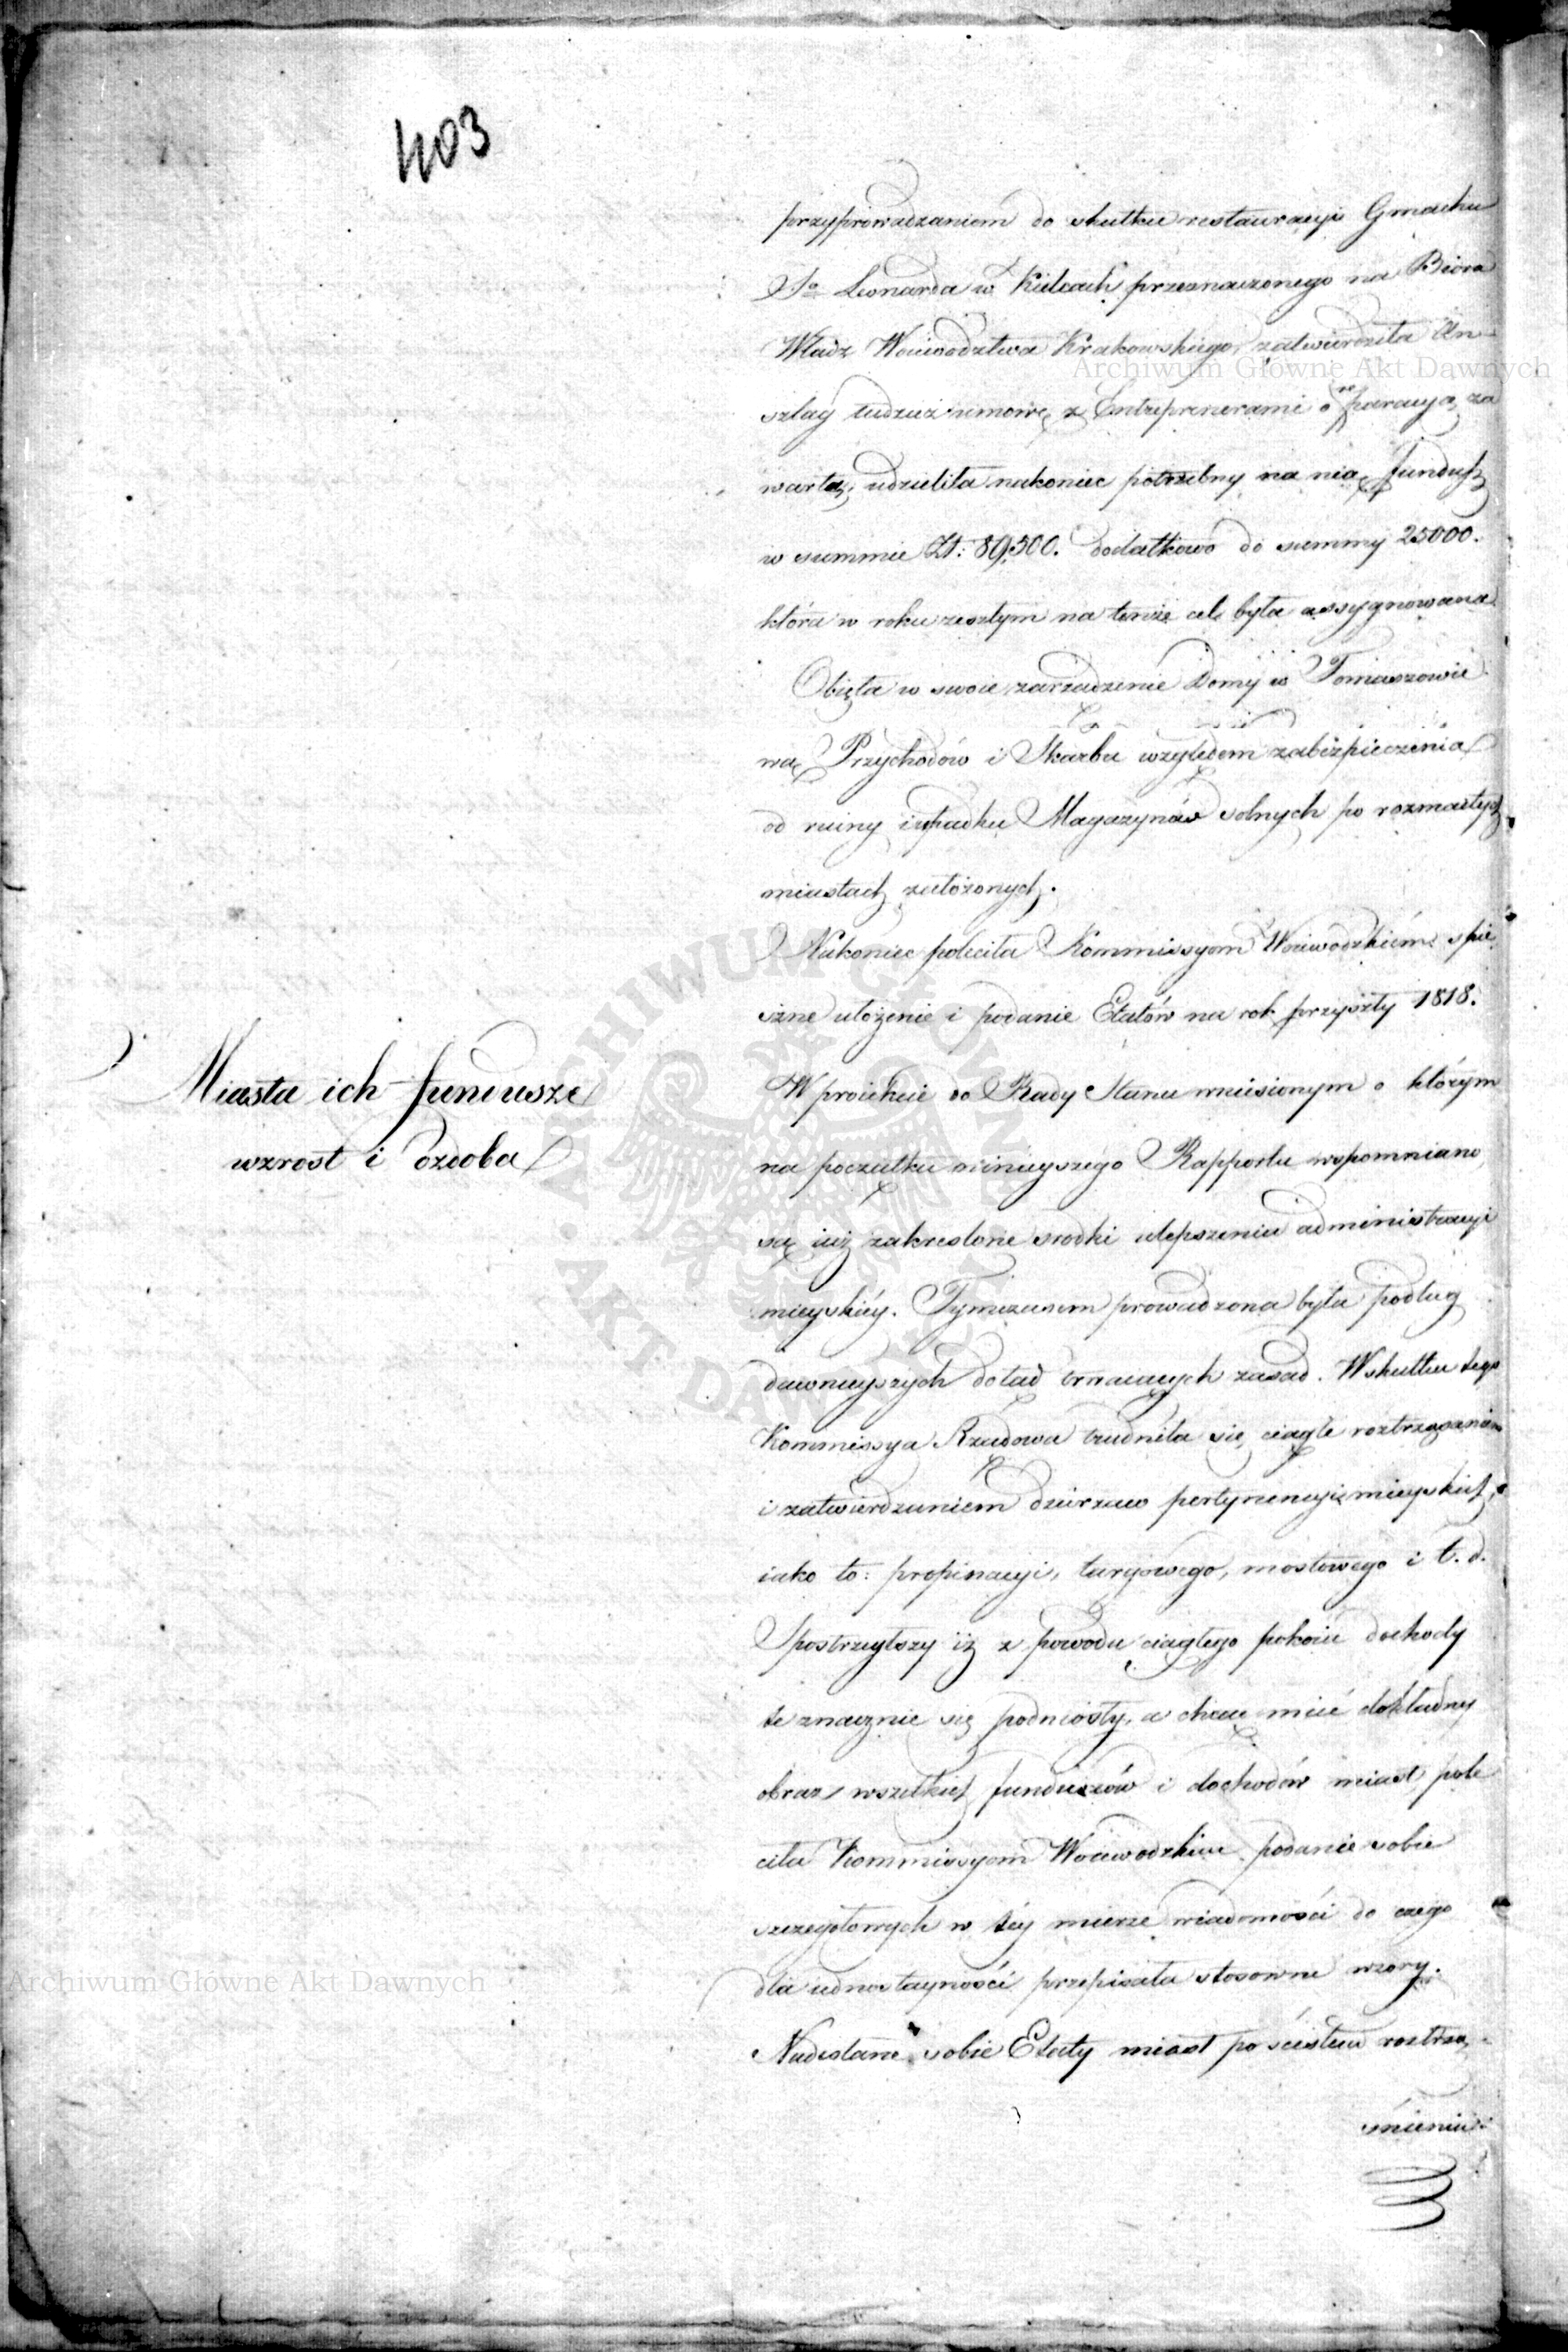 403
przyprowadzaniem do skutku restauracyi Gmachu
So Leonarda w Kielcach przeznaczonego na Biora
Władz Woiewodztwa Krakowskiego, zatwierdziła An-
szlag tudzież umowę z Entreprenerami o reparacyą za
wartą, udzieliła nakoniec potrzebny na nią fundusz
w summie Zł: 89,500. dodatkowo do summy 25000.
która w roku zeszłym na tenże cel była assygnowana
Obięła w swoie zarządzenie Domy w Tomaszowie
Przychodów i Skarbu względem zabezpieczenia
od ruiny i upadku Magazynów solnych po rozmaitych
miastach założonych.
Nakoniec poleciła Kommissyom Woiewodzkiem spie
szne ułożenie i podanie Etatów na rok przyszły 1818.
Miasta ich fundusze
wzrost i ozdoba
W proiekcie do Rady Stanu wniesionym o którym
na początku ninieyszego Rapportu wspomniano,
są iuż zakreslone srodki ulepszenia administracyi
mieyskiéy. Tymczasem prowadzona była podług
dawnieyszych dotąd trwaiących zasad. W skutku tego
Kommissya Rządowa trudniła się ciągle roztrząsaniem
i zatwierdzaniem dzierzaw pertynencyi mieyskich,
iako to: propinacyi, targowego, mostowego i t. d.
Spostrzegłszy iż z powodu ciągłego pokoiu dochody
te znacznie się podniosły, a chcąc mieć dokładny
obraz wszelkich funduszów i dochodów miast, pole
ciła Kommissyom Woiewodzkim podanie sobie
szczegółowych w téy mierze wiadomości do czego
dla iednostayności przepisała stosowne wzory.
Nadesłane sobie Etaty miast po ścisłem roztrzą-
śnieniu
Archiwum Główne Akt Dawnych
Archiwum Główne Akt Dawnych
ARCHIWUM GŁÓWNE AKT DAWNYCH